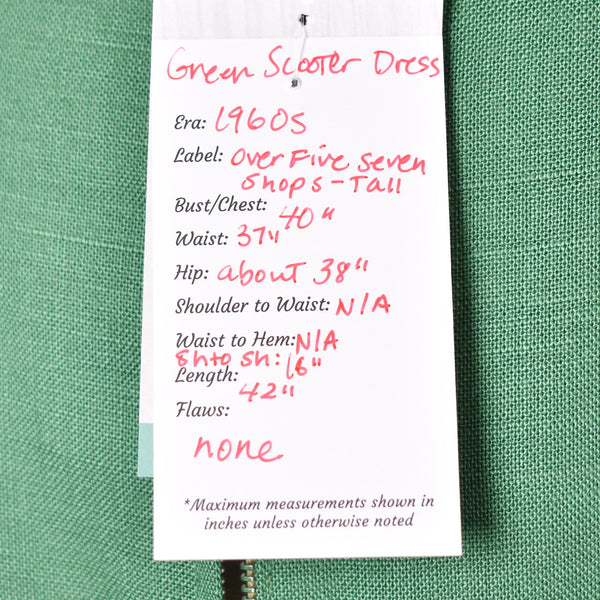 Green Scooter Dress
Era: 1960s
Label: Over Five Seven
Shops - Tall
Bust/Chest: 40"
Waist: 37"
Hip: about 38"
Shoulder to Waist: N/A
Waist to Hem: N/A
Sh to Sh: 16"
Length: 42"
Flaws:
none
*Maximum measurements shown in
inches unless otherwise noted